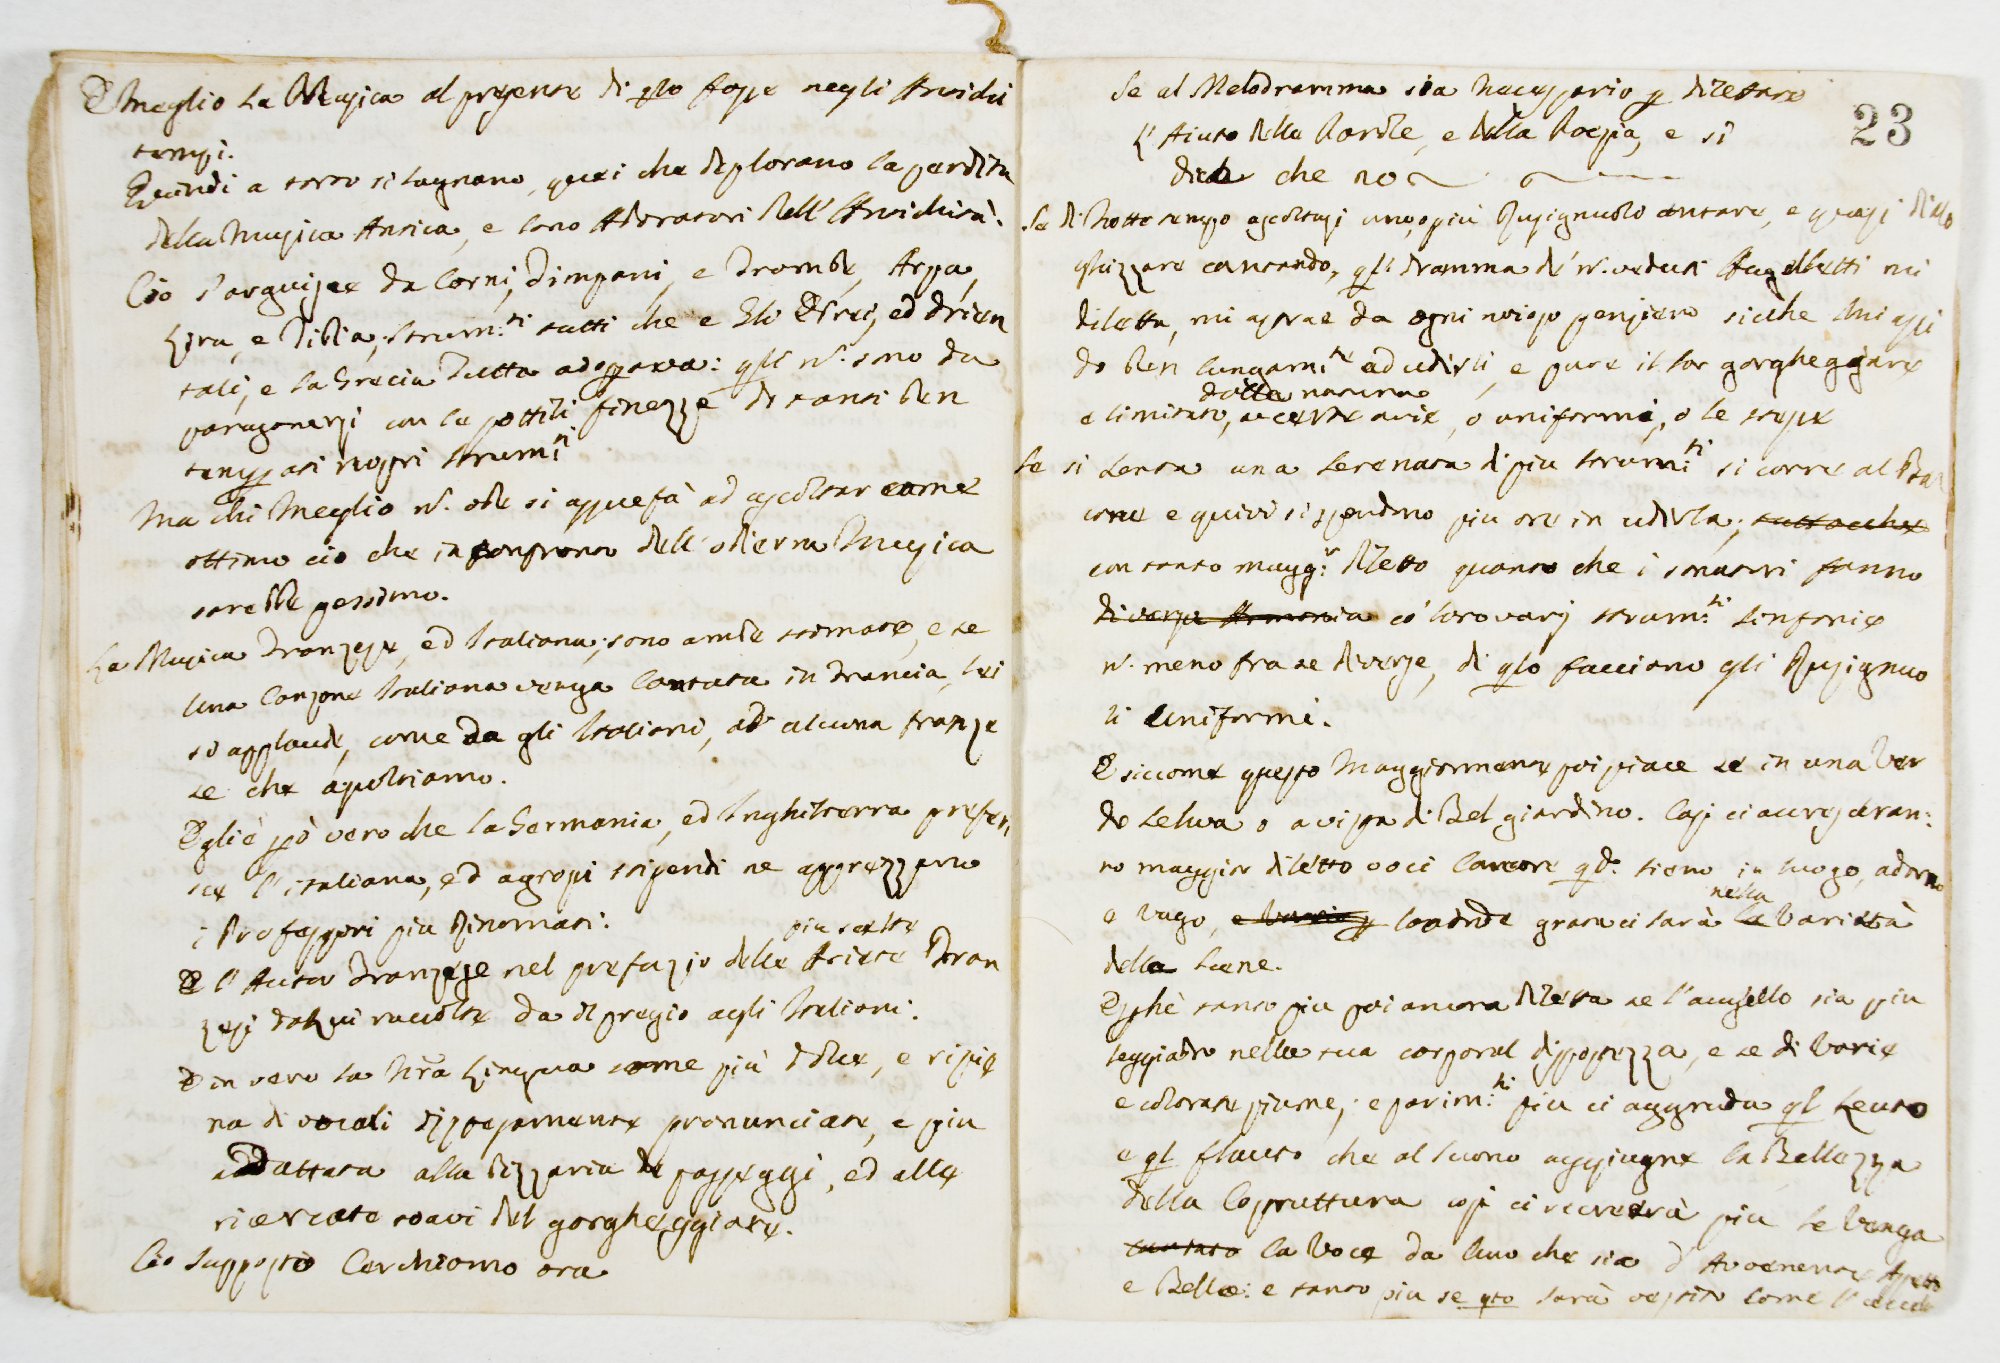 È meglio la Musica al presente di qto fosse negli Antichi
tempi.
Quindi a torto si lagnano, quei che deplorano la perdita
della Musica Antica, e sono Adoratori dell'Antichità.
Ciò s'arguisce da Corni, Timpani, e Trombe, Arpa,
Lira, e Tibia, strum:ti tutti che e Gli Ebrei, ed Orien
tali, e la Grecia Tutta adoprava: qsti n. sono da
paragonarsi con le sottili finezze di tanti ben
temprati nostri strum:ti
Ma chi Meglio n. ode si assuefà ad ascoltar come
ottimo ciò che in confronto dell'odierna Musica
sarebbe pessimo.
La Musica Franzese, ed Italiana, sono ambe stimate, e se
una Canzone Italiana venga Cantata in Francia, lei
si applaude, come da gli Italiani, ad alcuna franze
se che ascoltiamo.
Egli è pò vero che la Germania, ed Inghilterra preferi
sce l'italiana, ed a grossi stipendi ne apprezzano
i Professori piu Rinomati:
più scelte
E l'Autor Franzese nel prefazio delle Ariette Fran
zesi da lui raccolte da il pregio agli Italiani.
E in vero la Nrã Lingua come più dolce, e ripie
na di vocali distesamente pronunciate, e piu
addattata alla bizzaria de passeggi, ed alle
ricercate soavi del gorgheggiare.
Ciò supposto Cerchiamo ora
23
Se al Melodramma sia Necessario p dilettare
l'Aiuto delle Parole, e della Poesia, e si
dice che no
Se di Notte tempo ascoltasi uno, o più Rusignuolo cantare, e quasi dialo
ghizzare cantando, qsto dramma de n. veduti Augelletti mi
diletta, mi astrae da ogni noioso pensiero sicche mi assi
do ben lungam:te ad udirli, e pure il lor gorgheggiare
dalla natura
e limitato, a certe arie, o uniformi, o le stesse
Se si senta una Serenata di piu strum:ti si corre al Bal
cone e quivi si spendono piu ore in udirla, tuttocche
con tanto magg:r diletto quanto che i sonatori fanno
diversa Armonia co' loro varj strum:ti sinfonie
n. meno fra se diverse, di qto facciano gli Rusignuo
li uniformi.
E siccome questo Maggiormente poi piace se in una Ver
de Selva o a vista di Bel giardino. Così ci accresceran:
no maggior diletto voci Canore qdo. siono in luogo, adorno
nella
e vago, laonde grata ci sarà la Varietà
delle Scene.
E pchè tanto piu poi ancora diletta se l'augello sia piu
leggiadro nella sua corporal dispostezza, e se di Varie
e colorate piume; e parim:ti piu ci aggrada ql Leuto
e ql flauto che al suono aggiugne la Bellezza
della Costruttura così ci ricreerà piu se Venga
cantato la Voce da Uno che sia d'Avvenente Aspetto
e Bello: e tanto piu se qto sarà vestito come l'uccello